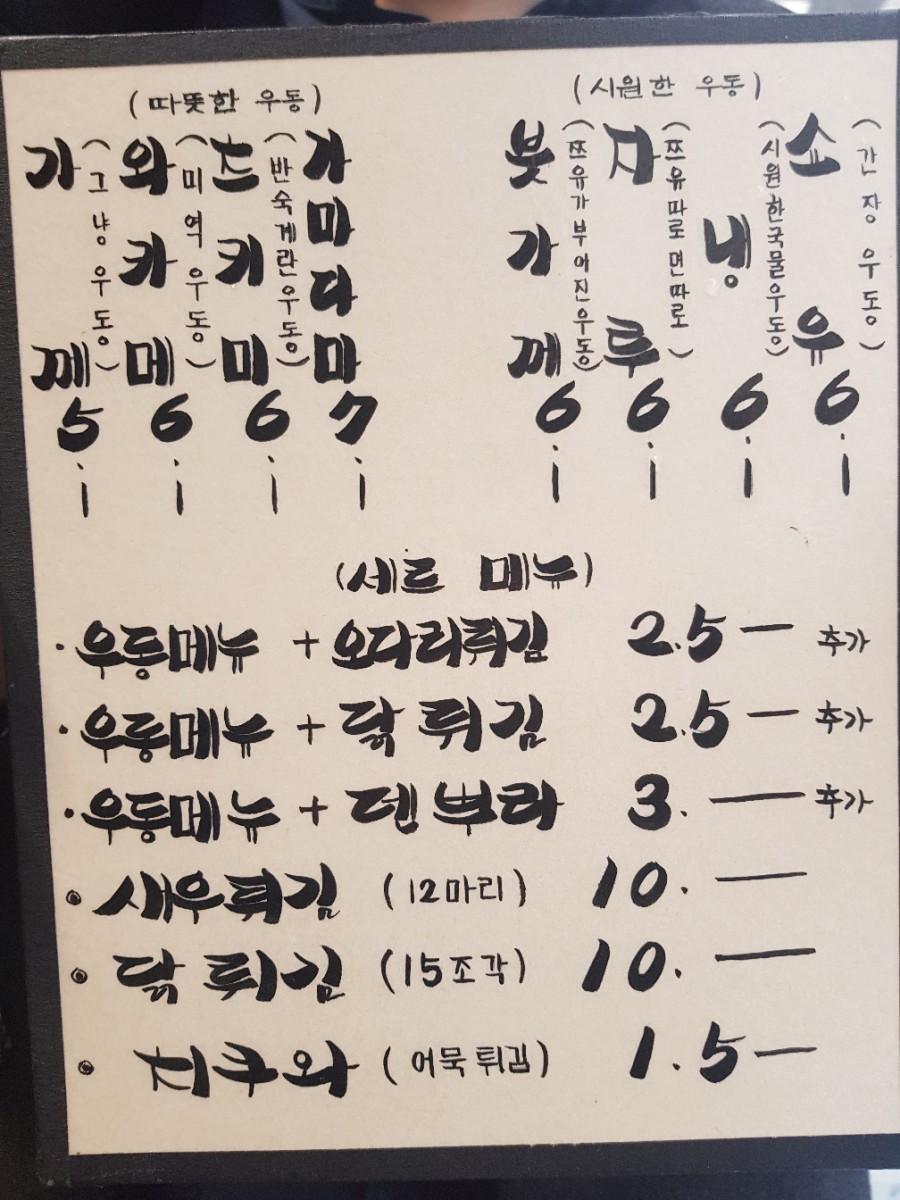 (따뜻한 우동)
가께
(그냥 우동)
5.-
와카메
(미역 우동)
6.-
츠키미
(반숙계란우동)
6.-
가마다마
7.-
(시원한 우동)
붓가께
(쯔유가부어진우동)
6.-
자루
(쯔유따로면따로)
6.-
냉
(시원한국물우동)
6.-
쇼유
(간장우동)
6.-
(세트 메뉴)
· 우동메뉴 + 오다리튀김 2.5- 추가
· 우동메뉴 + 닭튀김 2.5- 추가
· 우동메뉴 + 덴뿌라 3.- 추가
• 새우튀김 (12마리) 10.-
• 닭튀김 (15조각) 10.-
• 치쿠와 (어묵튀김) 1.5-